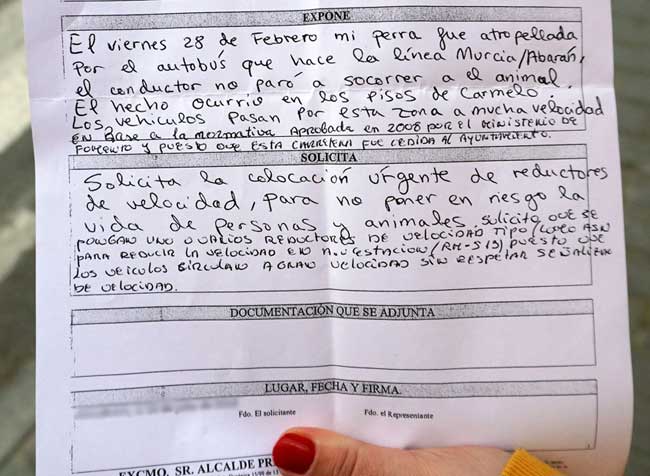 EXPONE
El viernes 28 de Febrero mi perra fue atropellada
Por el autobús que hace la línea Murcia/Abarán,
el conductor no paró a socorrer a el animal.
El hecho ocurrió en los pisos de Carmelo.
Los vehiculos pasan por esta zona a mucha velocidad
EN BASE A LA NORMATIVA APROBADA EN 2008 POR EL MINISTERIO DE
FOMENTO Y PUESTO QUE ESTA CARRETERA FUE CEDIDA AL AYUNTAMIENTO.
SOLICITA
Solicita la colocación urgente de reductores
de velocidad, para no poner en riesgo la
vida de personas y animales. SOLICITO QUE SE
PONGAN UNO O VARIOS REDUCTORES DE VELOCIDAD TIPO
PARA REDUCIR LA VELOCIDAD EN (RM-513) PUESTO QUE
LOS VEICULOS CIRCULAN A GRAN VELOCIDAD SIN RESPETAR
DE VELOCIDAD.
DOCUMENTACIÓN QUE SE ADJUNTA
LUGAR, FECHA Y FIRMA.
Fdo. El solicitante Fdo. el Representante
EXCMO. SR. ALCALDE